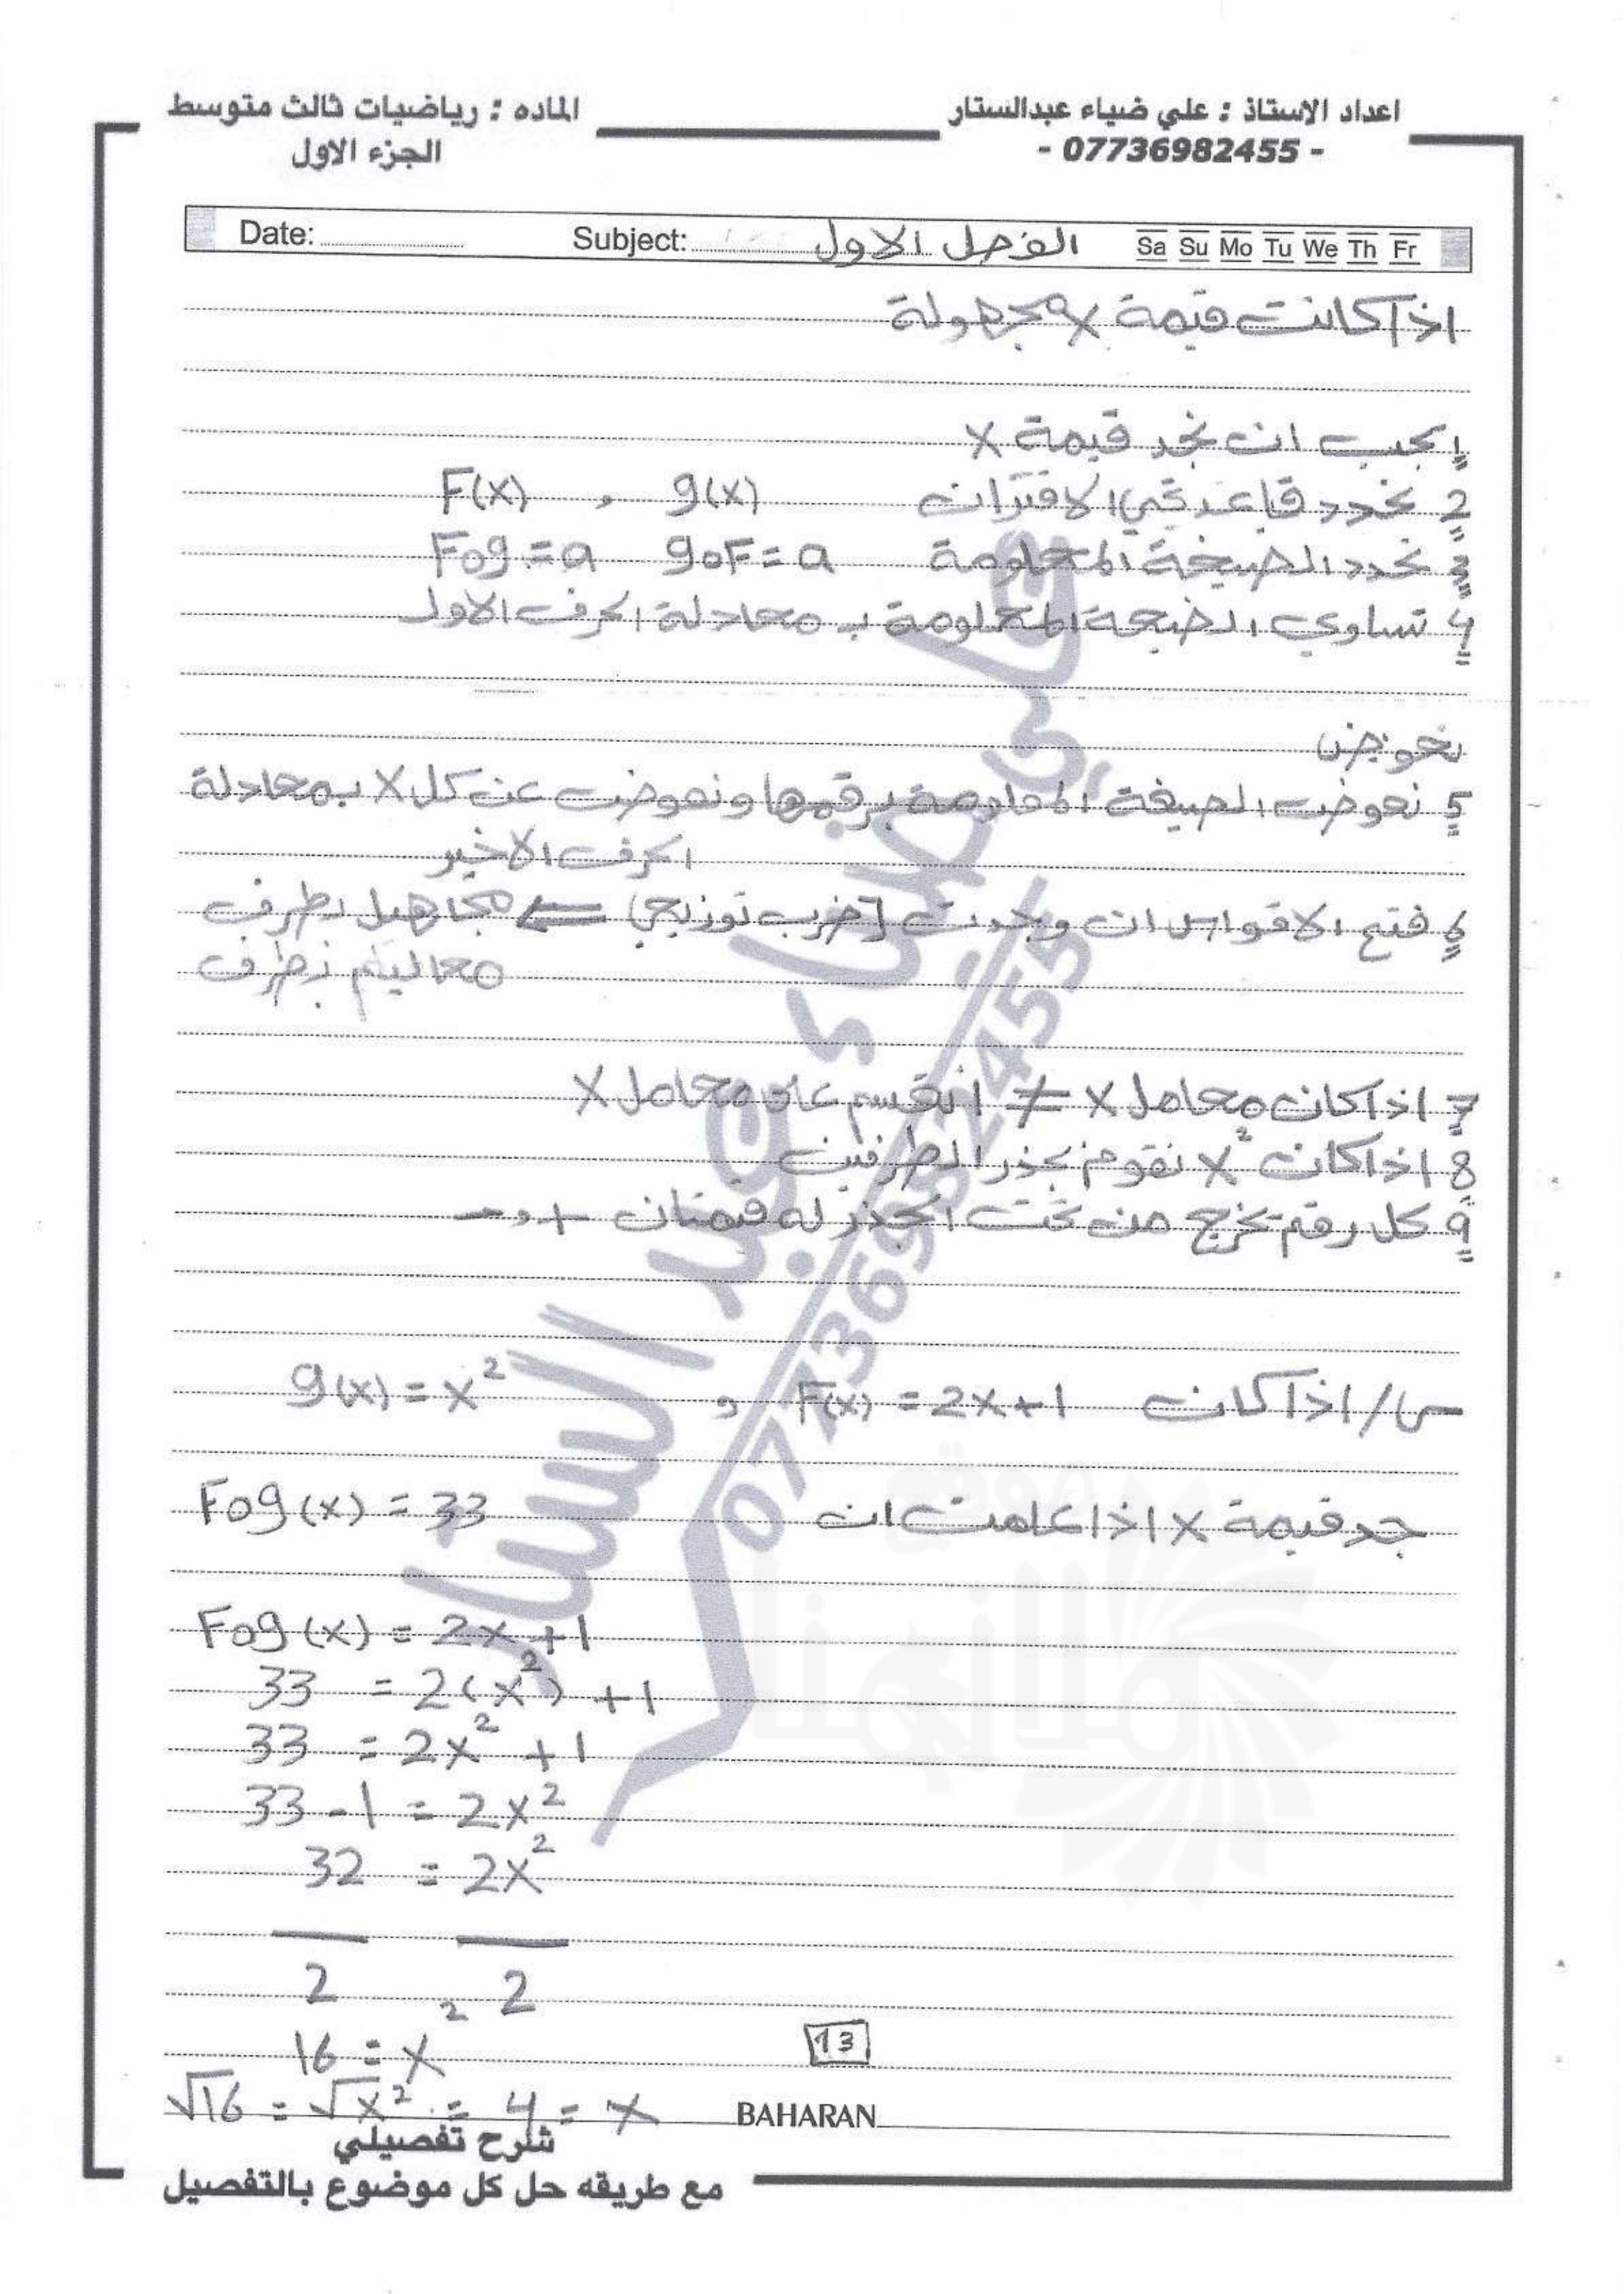 اعداد الاستاذ : علي ضياء عبدالستار
- 07736982455 -
الماده : رياضيات ثالث متوسط
الجزء الاول
Date: Subject: الفصل الاول Sa Su Mo Tu We Th Fr
اذا كانت قيمة x مجهولة
1 يجب ان نجد قيمة x
2 نحدد قاعدتي الاقترانات g(x) , F(x)
3 نحدد الصيغة المعلومة goF=a Fog=a
4 تساوي الصيغة المعلومة بـ معادلة الحرف الاول
نعوض
5 نعوض الصيغة المعلومة برقمها ونعوض عن كل x بمعادلة
الحرف الاخير
6 فتح الاقواس ان وجدت [ضرب توزيعي) ⇐ مجاهيل بطرف
معاليم بطرف
7 اذا كان معامل x ≠ 1 نقسم على معامل x
8 اذا كانت x² نقوم بجذر الطرفين
9 كل رقم تخرج من تحت الجذر له قيمتان + و -
س/ اذا كانت F(x) = 2x+1 و g(x) = x²
جد قيمة x اذا علمت ان Fog(x) = 33
Fog(x) = 2x+1
33 = 2(x²) +1
33 = 2x² +1
33 - 1 = 2x²
32 = 2x²
2 2
16 = x²
√16 = √x² = 4 = x
13
BAHARAN
شرح تفصيلي
مع طريقه حل كل موضوع بالتفصيل
علي ضياء عبد الستار
07736982455